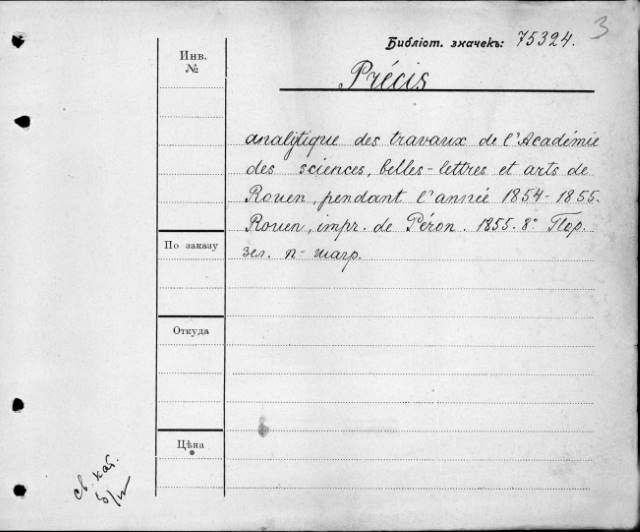 3
Библіот. значекъ: 75324.
Инв.
№
Précis
analytique des travaux de l'Académie
des sciences, belles-lettres et arts de
Rouen, pendant l'année 1854-1855.
Rouen, impr. de Péron. 1855. 8° Пор.
зел. п-шагр.
По заказу
Откуда
Цѣна
св. кат.